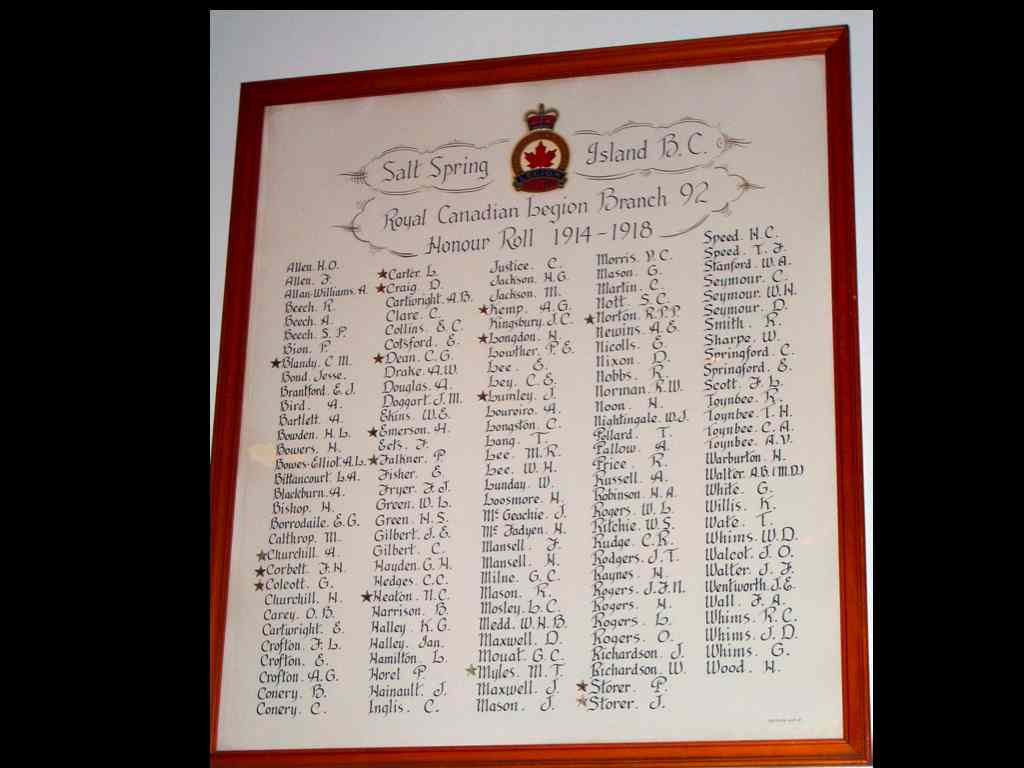 Salt Spring Island B.C.
LEGION
Royal Canadian Legion Branch 92
Honour Roll 1914-1918
Allen. H.O.
Allen. F.
Allan-Williams. A.
Beech. R.
Beech. A.
Beech. S. P.
Bion. P.
★Blandy. C M.
Bond. Jesse.
Brantford. E. J.
Bird. A.
Bartlett. A.
Bowden. H. L.
Bowers. H.
Bowes-Elliot. A.L.
Bittancourt. L.A.
Blackburn. A.
Bishop. H.
Borrodaile. E.G.
Calthrop. M.
★Churchill. A.
★Corbett. F.H.
★Colcott. G.
Churchill. H.
Carey. O.B.
Cartwright. E.
Crofton. F. L.
Crofton. E.
Crofton. A.G.
Conery. B.
Conery. C.
★Carter. L.
★Craig. D.
Cartwright. A.B.
Clare. C.
Collins. E. C.
Cotsford. E.
★Dean. C. G.
Drake. A.W.
Douglas. A.
Doggart. J. M.
Ekins. W.E.
★Emerson. H.
Eets. F.
★Falkner. P.
Fisher. E.
Fryer. F. J.
Green. W. L.
Green. H.S.
Gilbert. J. E.
Gilbert. C.
Hayden. G. H.
Hedges. C.C.
★Heaton. N.C.
Harrison. B.
Halley. K. G.
Halley. Ian.
Hamilton. L.
Horel P.
Hainault. J.
Inglis. C.
Justice. C.
Jackson. H.G.
Jackson. M.
★Kemp. A. G.
Kingsbury. J.C.
★Longdon. H.
Lowther. P. E.
Lee. E.
Ley. C. E.
★Lumley. J.
Loureiro. A.
Longston. C.
Lang. T.
Lee. M.R.
Lee. W. H.
Lunday. W.
Loosmore. H.
Mc Geachie. J.
Mc Fadyen. H.
Mansell. F.
Mansell. H.
Milne. G. C.
Mason. R.
Mosley. L. C.
Medd. W.H.B.
Maxwell. D.
Mouat. G. C.
★Myles. M. T.
Maxwell. J.
Mason. J.
Morris. V. C.
Mason. G.
Martin. C.
Nott. S. C.
★Norton. R.P.P.
Newins. A. E.
Nicolls. E.
Nixon. D.
Nobbs. R.
Norman. R.W.
Noon. H.
Nightingale. W.J.
Pollard. T.
Pallow. A.
Price. R.
Russell. A.
Robinson. H. A.
Rogers. W. L.
Ritchie. W.S.
Rudge. C.R.
Rodgers. J. T.
Raynes. H.
Rogers. J.F.N.
Rogers. H.
Rogers. L.
Rogers. O.
Richardson. J.
Richardson. W.
★Storer. P.
★Storer. J.
Speed. H.C.
Speed. T. F.
Stanford. W.A.
Seymour. C.
Seymour. W.H.
Seymour. D.
Smith. R.
Sharpe. W.
Springford. C.
Springford. E.
Scott. F. L.
Toynbee. R.
Toynbee. T. H.
Toynbee. C. A.
Toynbee. A.V.
Warburton. H.
Walter. A.B. (M.D.)
White. G.
Willis. K.
Wate. T.
Whims. W.D.
Walcot. J. O.
Walter. J. F.
Wentworth. J.E.
Wall. F. A.
Whims. R. C.
Whims. J. D.
Whims. G.
Wood. H.